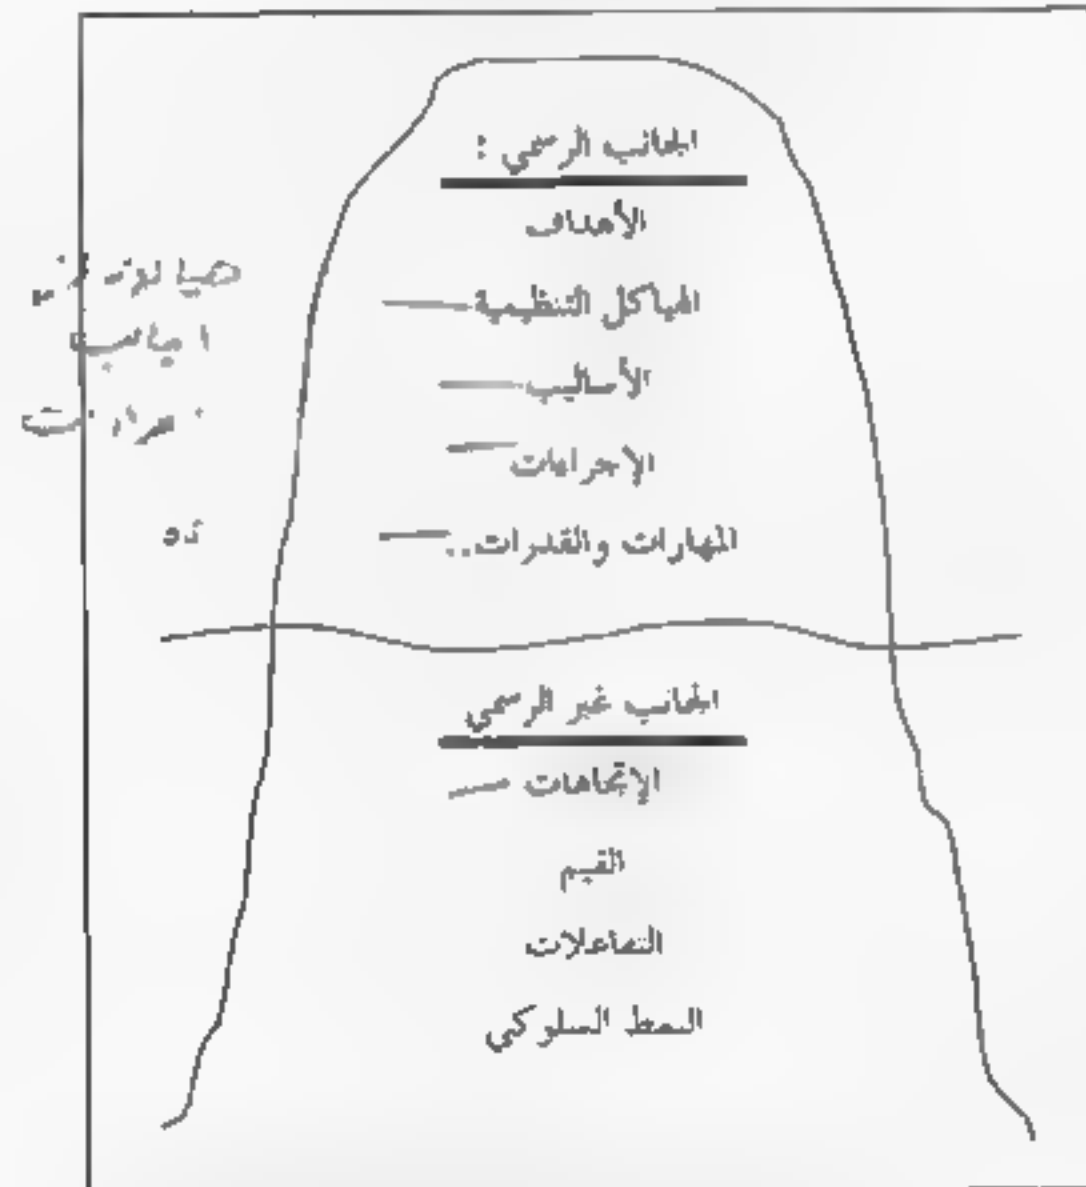 الجانب الرسمي :
الأهداف
الهياكل التنظيمية
الأساليب
الإجراءات
المهارات والقدرات..
الجانب غير الرسمي
الإتجاهات
القيم
التفاعلات
النمط السلوكي